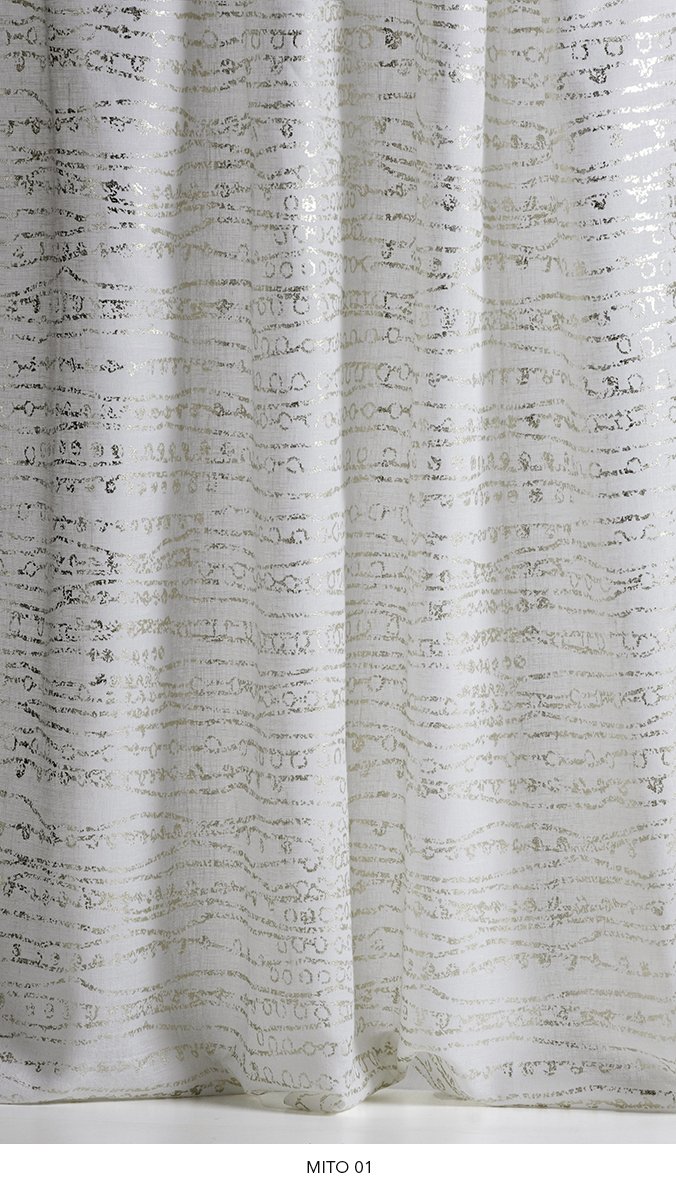 MITO 01